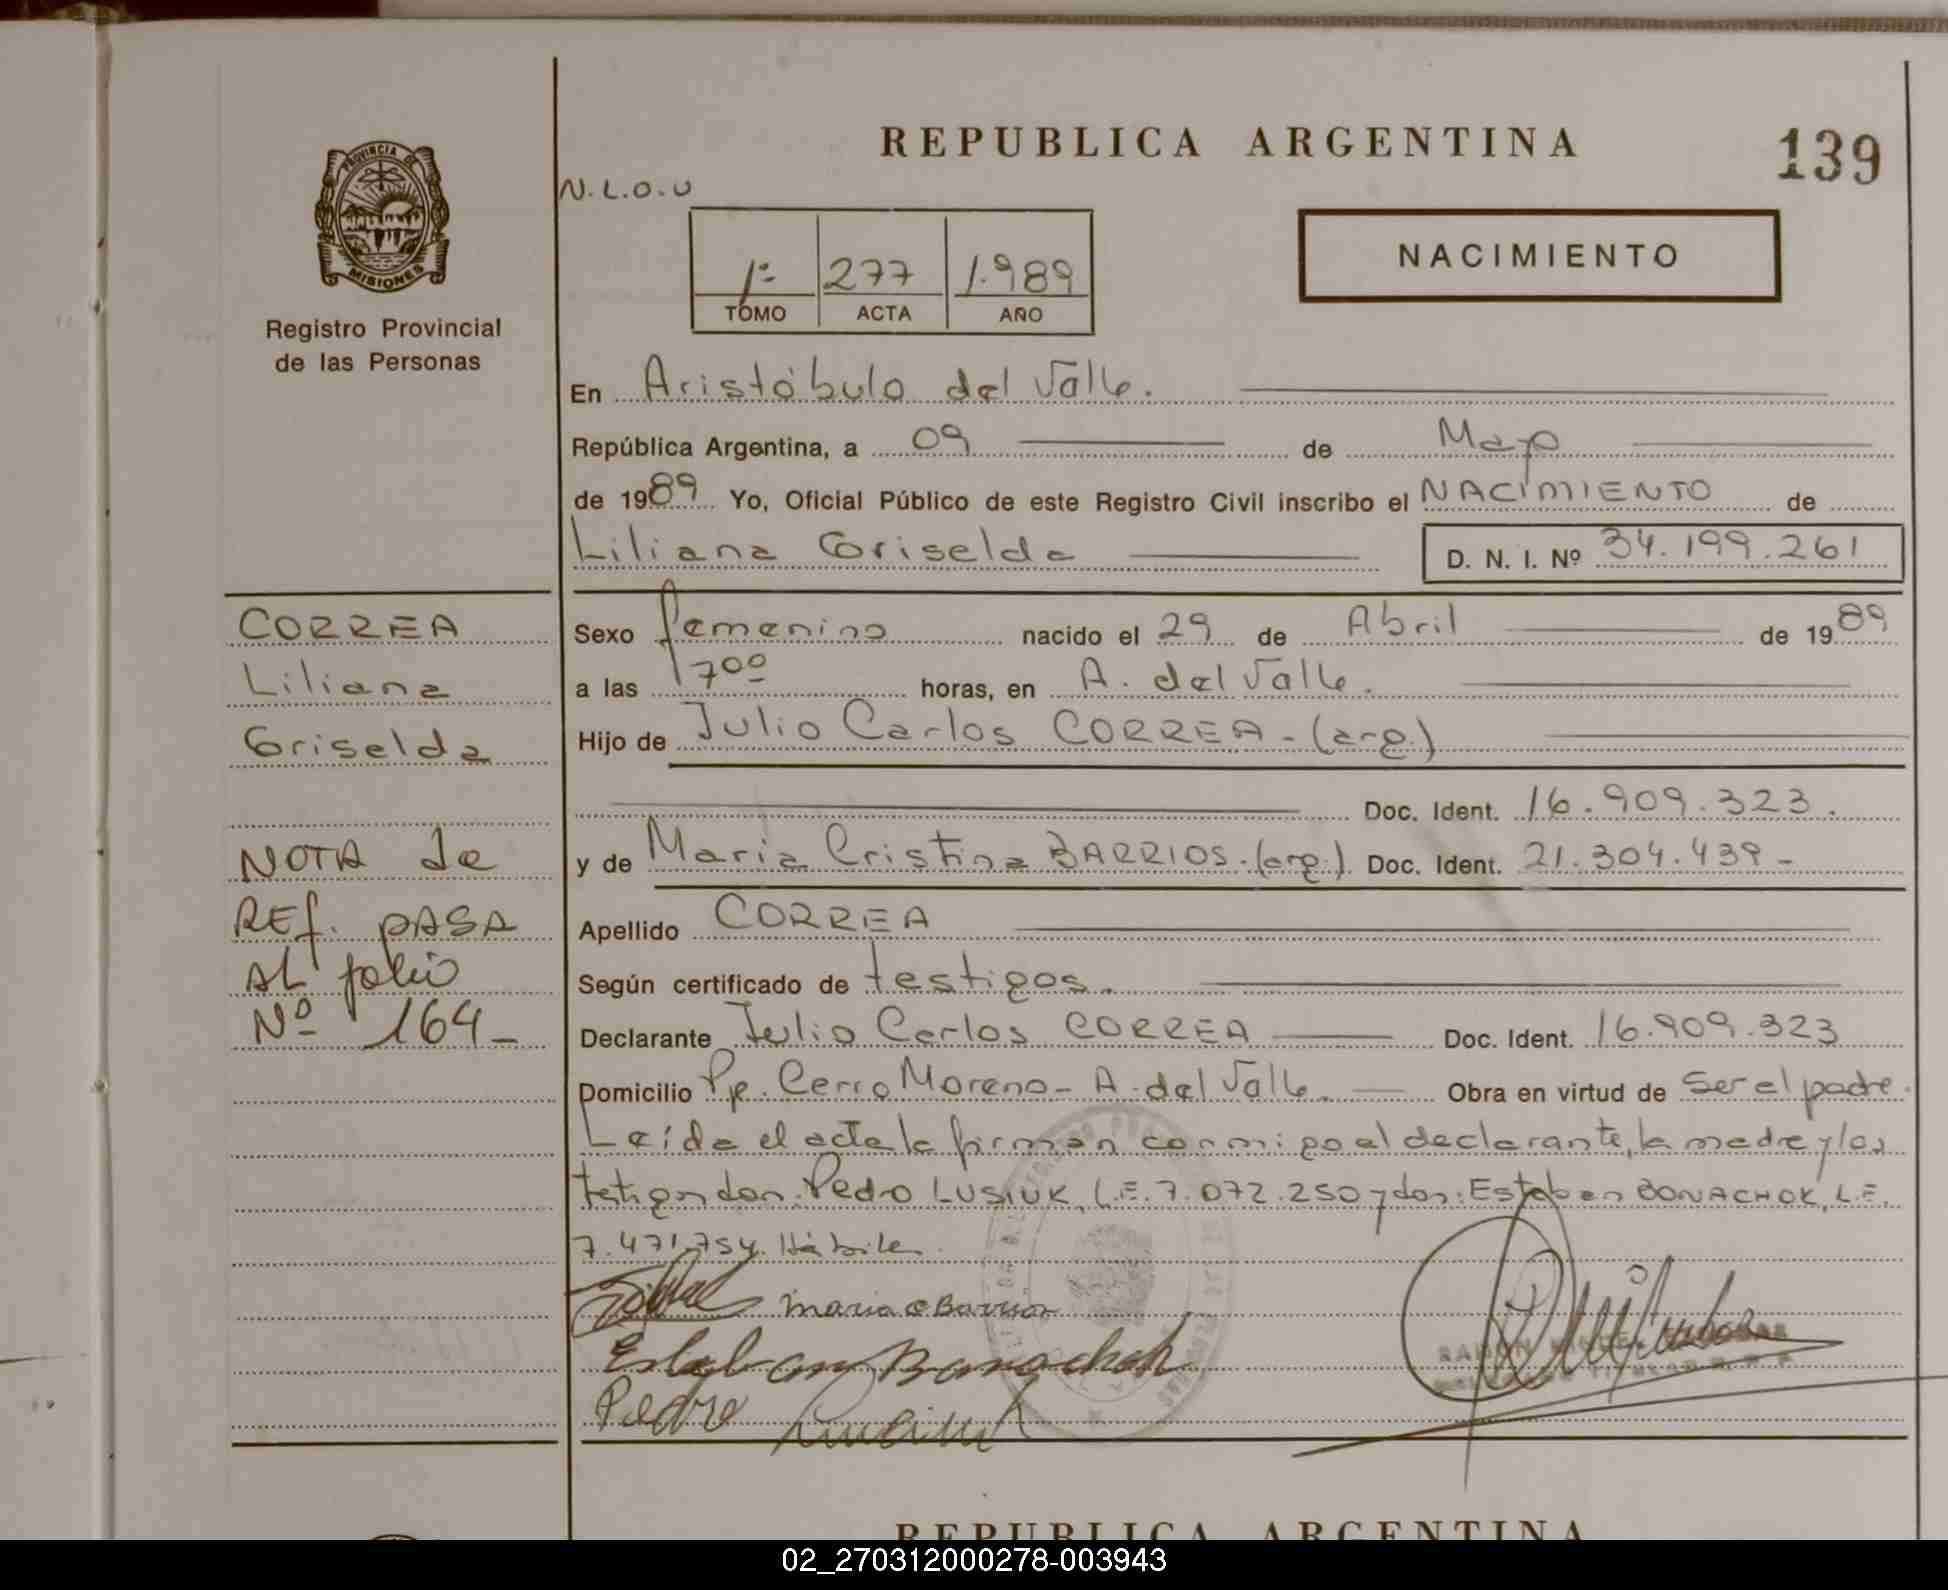 REPUBLICA ARGENTINA
139
PROVINCIA DE
MISIONES
Registro Provincial
de las Personas
N.L.O.U
NACIMIENTO
1º 277 1.989
TOMO ACTA AÑO
En Aristóbulo del Valle.
República Argentina, a 09 de Mayo
de 1989 Yo, Oficial Público de este Registro Civil inscribo el NACIMIENTO de
Liliana Griselda D. N. I. Nº 34.199.261
CORREA
Liliana
Griselda
NOTA de
REf. pASA
AL folio
Nº 164-
Sexo femenino nacido el 29 de Abril de 1989
a las 17ºº horas, en A. del Valle.
Hijo de Julio Carlos CORREA - (arg.)
Doc. Ident. 16.909.323.
y de María Cristina BARRIOS.(arg.) Doc. Ident. 21.304.439-
Apellido CORREA
Según certificado de testigos.
Declarante Julio Carlos CORREA Doc. Ident. 16.909.323
Domicilio Pje. Cerro Moreno - A. del Valle. Obra en virtud de Ser el padre.
Leída el acta la firman conmigo el declarante, la madre y los
testigos don: Pedro LUSIUK, L.E. 7.072.250 y don: Esteban BONACHOK, L.E.
7.471.754. Hábiles.
maria C Barrios
Esteban Bonachok
Pedro
REPUBLICA ARGENTINA
02_270312000278-003943